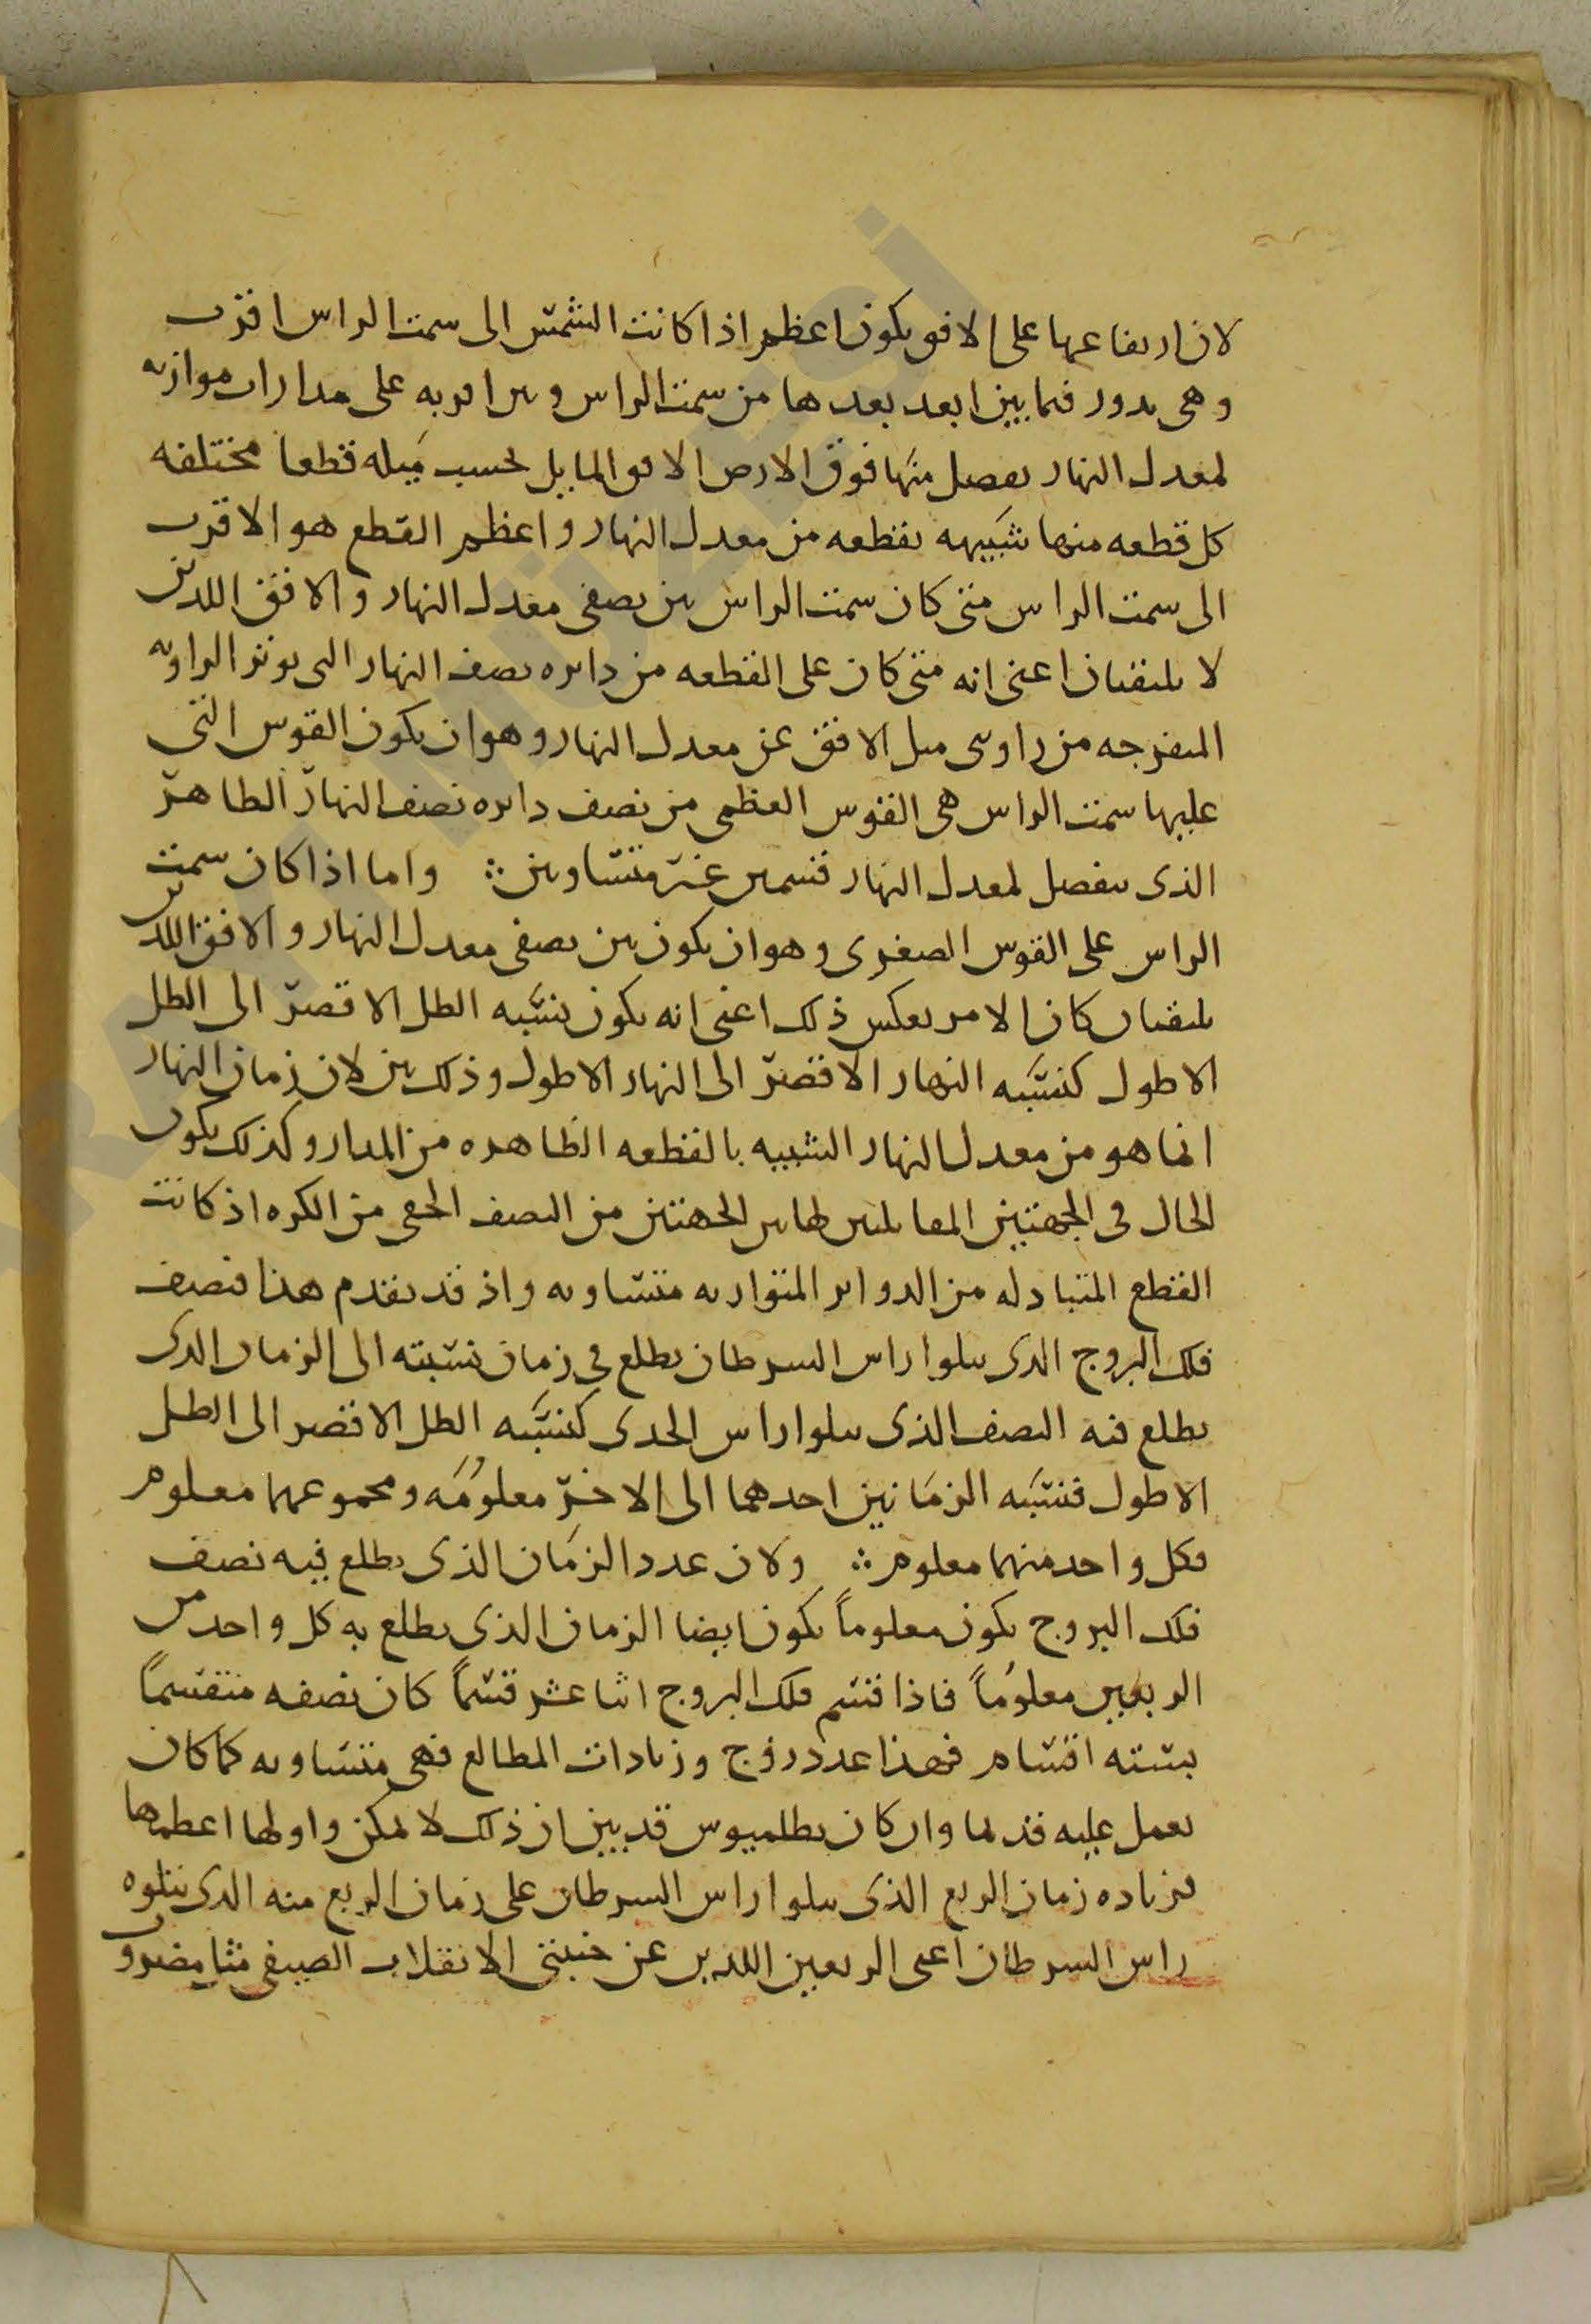 لان ارتفاعها على الافق يكون اعظم اذا كانت الشمس الى سمت الراس اقرب
وهي تدور فيما بين ابعد بعدها من سمت الراس وبين اقربه على مدارات موازيه
لمعدل النهار يفصل منها فوق الارض الافق المايل بحسب ميله قطعا مختلفه
كل قطعه منها شبيهه بقطعه من معدل النهار واعظم القطع هو الاقرب
الى سمت الراس متى كان سمت الراس بين نصفي معدل النهار والافق اللذين
لا يلتقيان اعني انه متى كان على القطعه من دايره نصف النهار التي توتر الزاويه
المنفرجه من زاويتي ميل الافق عن معدل النهار وهو ان يكون القوس التي
عليها سمت الراس هي القوس العظمى من نصف دايره نصف النهار الظاهر
الذي ينفصل لمعدل النهار قسمين غير متساويين ∴ واما اذا كان سمت
الراس على القوس الصغرى وهو ان يكون بين نصفي معدل النهار والافق اللذين
يلتقيان كان الامر بعكس ذلك اعني انه يكون نسبه الظل الاقصر الى الظل
الاطول كنسبه النهار الاقصر الى النهار الاطول وذلك بين لان زمان النهار
انما هو من معدل النهار الشبيه بالقطعه الظاهره من المدار وكذلك يكون
الحال في الجهتين المقابلتين لهاتين الجهتين من النصف الخفي من الكره اذ كانت
القطع المتبادله من الدواير المتوازيه متساويه واذ قد تقدم هذا فنصف
فلك البروج الذي يتلوا راس السرطان يطلع في زمان نسبته الى الزمان الذي
يطلع فيه النصف الذي يتلوا راس الجدي كنسبه الظل الاقصر الى الظل
الاطول فنسبه الزمانين احدهما الى الاخر معلومه ومجموعهما معلوم
فكل واحد منهما معلوم ∴ ولان عدد الزمان الذي يطلع فيه نصف
فلك البروج يكون معلوماً يكون ايضا الزمان الذي يطلع به كل واحد من
الربعين معلوماً فاذا قسم فلك البروج اثنا عشر قسماً كان نصفه منقسماً
بسته اقسام فهذا عدد زوج وزيادات المطالع فهي متساويه كما كان
يعمل عليه قديما وان كان بطلميوس قد بين ان ذلك لا يمكن واولها اعظمها
فزياده زمان الربع الذي يتلوا راس السرطان على زمان الربع منه الذي يتلوه
راس السرطان اعني الربعين اللذين عن جنبتي الانقلاب الصيفي